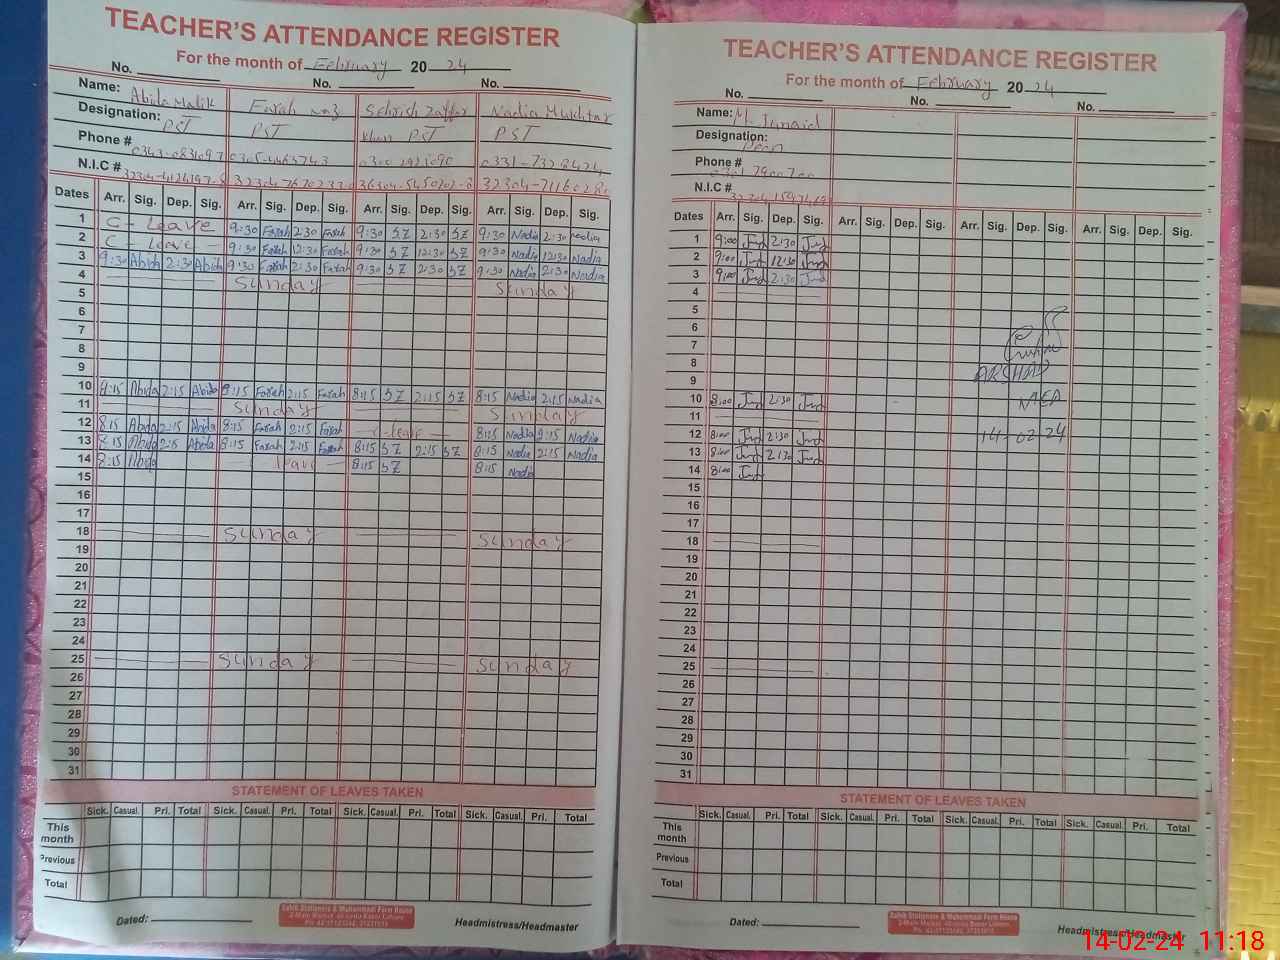 TEACHER'S ATTENDANCE REGISTER
For the month of February 2024
No. No. No.
Name: Abida Malik Farah naz Sehrish Zaffar Nadia Mukhtar
Designation: PST PST Khan PST PST
Phone # 0331-7328424
N.I.C #
Dates Arr. Sig. Dep. Sig. Arr. Sig. Dep. Sig. Arr. Sig. Dep. Sig. Arr. Sig. Dep. Sig.
1 C - Leave 9:30 Farah 2:30 Farah 9:30 SZ 2:30 SZ 9:30 Nadia 2:30 nadia
2 C - Leave 9:30 Farah 12:30 Farah 9:30 SZ 12:30 SZ 9:30 Nadia 12:30 Nadia
3 9:30 Abida 2:30 Abida 9:30 Farah 2:30 Farah 9:30 SZ 2:30 SZ 9:30 Nadia 2:30 Nadia
4 Sunday Sunday
5
6
7
8
9
10 8:15 Abida 2:15 Abida 8:15 Farah 2:15 Farah 8:15 SZ 2:15 SZ 8:15 Nadia 2:15 Nadia
11 Sunday Sunday
12 8:15 Abida 2:15 Abida 8:15 Farah 2:15 Farah C-Leave 8:15 Nadia 2:15 Nadia
13 8:15 Abida 2:15 Abida 8:15 Farah 2:15 Farah 8:15 SZ 2:15 SZ 8:15 Nadia 2:15 Nadia
14 8:15 Abida Leave 8:15 SZ 8:15 Nadia
15
16
17
18 Sunday Sunday
19
20
21
22
23
24
25 Sunday Sunday
26
27
28
29
30
31
STATEMENT OF LEAVES TAKEN
Sick. Casual. Pri. Total Sick. Casual. Pri. Total Sick. Casual. Pri. Total Sick. Casual. Pri. Total
This month
Previous
Total
Dated: Headmistress/Headmaster
TEACHER'S ATTENDANCE REGISTER
For the month of February 2024
No. No. No.
Name: M. Junaid
Designation: Peon
Phone #
N.I.C #
Dates Arr. Sig. Dep. Sig. Arr. Sig. Dep. Sig. Arr. Sig. Dep. Sig. Arr. Sig. Dep. Sig.
1 9:00 Jnd 2:30 Jnd
2 9:00 Jnd 12:30 Jnd
3 9:00 Jnd 2:30 Jnd
4
5
6
7
8
9 ARSHAD
10 8:00 Jnd 2:30 Jnd MEA
11
12 8:00 Jnd 2:30 Jnd 14-02-24
13 8:00 Jnd 2:30 Jnd
14 8:00 Jnd
15
16
17
18
19
20
21
22
23
24
25
26
27
28
29
30
31
STATEMENT OF LEAVES TAKEN
Sick. Casual. Pri. Total Sick. Casual. Pri. Total Sick. Casual. Pri. Total Sick. Casual. Pri. Total
This month
Previous
Total
Dated: Headmistress/Headmaster
14-02-24 11:18